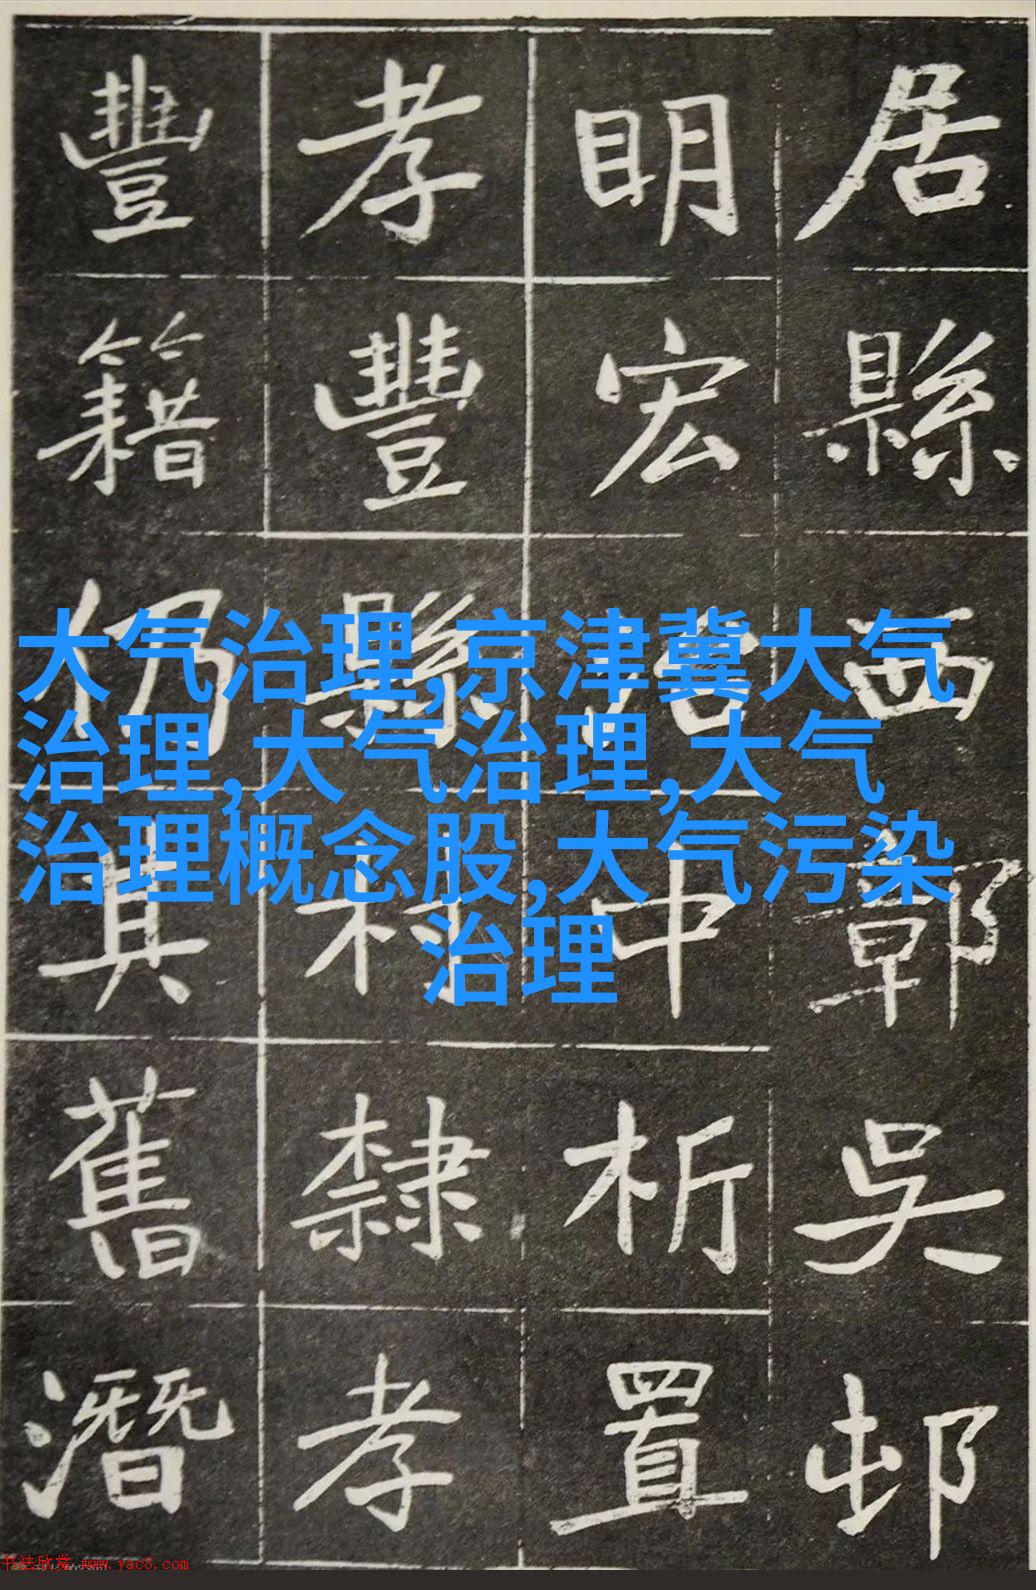 居縣西鄣吳邨
明宏治中析置
孝豐縣村隸孝
豐籍仍其舊潛
大气治理,京津冀大气
治理,大气治理,大气
治理概念股,大气污染
治理
书法欣赏 www.yac8.com